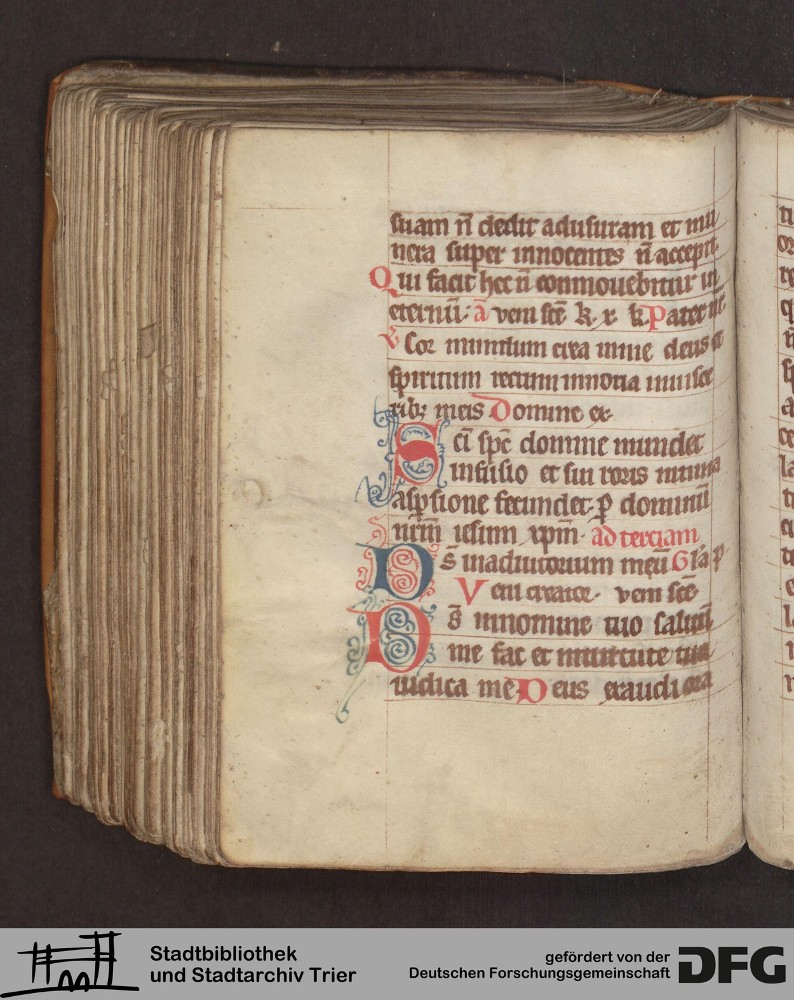 suam n̄ dedit adusuram et mu
nera super innocentes n̄ accepit.
Qui facit hec n̄ conmouebitur in
eternū. ā veni sc̄e k. x. k. Pater nr̄.
Cor mundum crea inme deus et
spiritum rectum innoua inuisce
ribꝫ meis Domine ex.
Sc̄i sp̄c domine mundet
infusio et sui roris intima
aspsione fecundet. p̄ dominū
nrm̄ iesum xpm̄. ad terciam
Ds̄ inadiutorium meū Gl'a p
Veni creator. veni sc̄e
Ds̄ innomine tuo saluū
me fac et inuirtute tua
iudica me Deus exaudi ora
Stadtbibliothek
und Stadtarchiv Trier
gefördert von der
Deutschen Forschungsgemeinschaft
DFG